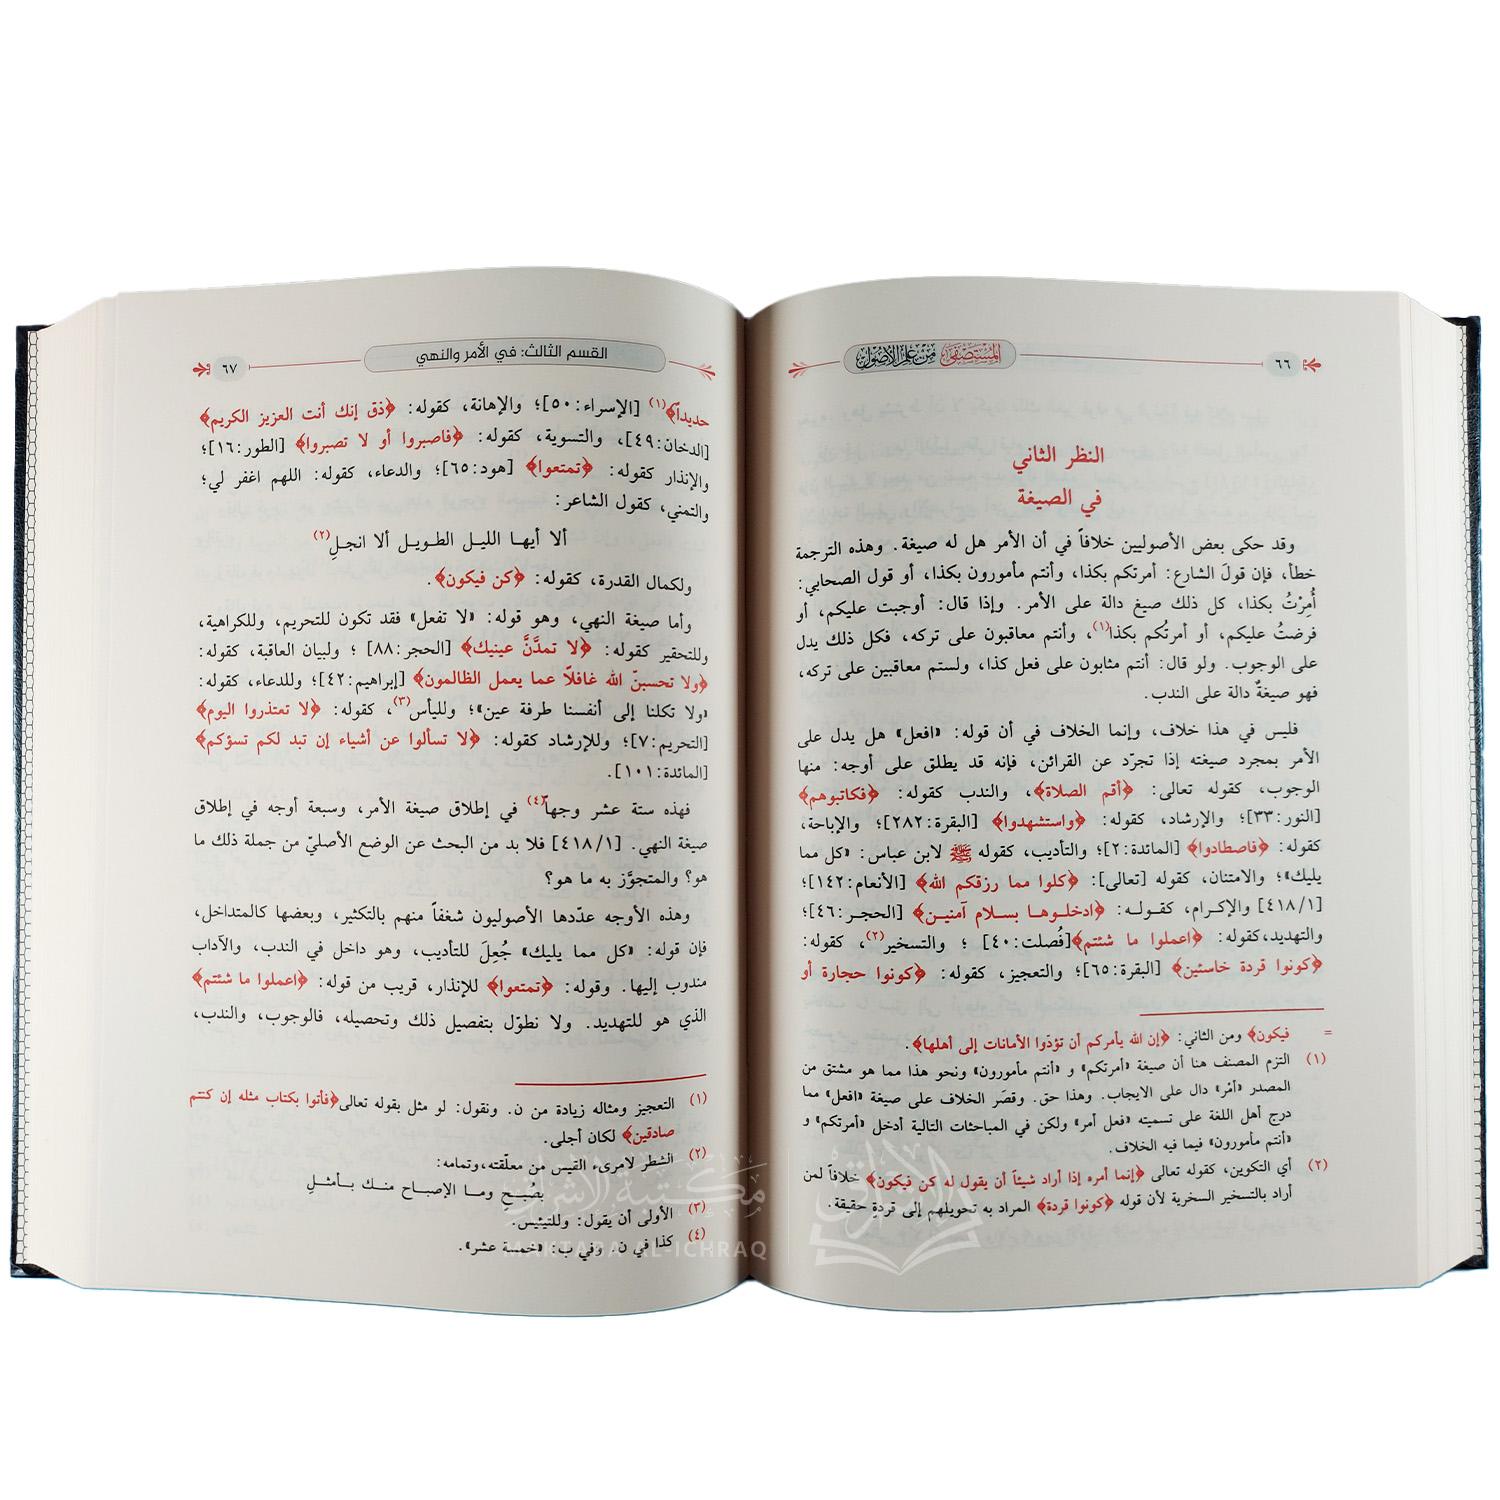 ٦٦
المستصفى من علم الأصول
النظر الثاني
في الصيغة
وقد حكى بعض الأصوليين خلافاً في أن الأمر هل له صيغة. وهذه الترجمة
خطأ، فإن قولَ الشارع: أمرتكم بكذا، وأنتم مأمورون بكذا، أو قول الصحابي:
أُمِرْتُ بكذا، كل ذلك صيغ دالة على الأمر. وإذا قال: أوجبت عليكم، أو
فرضتُ عليكم، أو أمرتُكم بكذا(١)، وأنتم معاقبون على تركه، فكل ذلك يدل
على الوجوب. ولو قال: أنتم مثابون على فعل كذا، ولستم معاقبين على تركه،
فهو صيغةٌ دالة على الندب.
فليس في هذا خلاف، وإنما الخلاف في أن قوله: «افعل» هل يدل على
الأمر بمجرد صيغته إذا تجرّد عن القرائن، فإنه قد يطلق على أوجه: منها
الوجوب، كقوله تعالى: ﴿أقم الصلاة﴾، والندب كقوله: ﴿فكاتبوهم﴾
[النور:٣٣]؛ والإرشاد، كقوله: ﴿واستشهدوا﴾ [البقرة:٢٨٢]؛ والإباحة،
كقوله: ﴿فاصطادوا﴾ [المائدة:٢]؛ والتأديب، كقوله ﷺ لابن عباس: «كل مما
يليك»؛ والامتنان، كقوله [تعالى]: ﴿كلوا مما رزقكم الله﴾ [الأنعام:١٤٢]؛
[٤١٨/١] والإكرام، كقوله: ﴿ادخلوها بسلام آمنين﴾ [الحجر:٤٦]؛
والتهديد،كقوله: ﴿اعملوا ما شئتم﴾[فُصلت:٤٠] ؛ والتسخير(٢)، كقوله:
﴿كونوا قردة خاسئين﴾ [البقرة:٦٥]؛ والتعجيز، كقوله: ﴿كونوا حجارة أو
= فيكون﴾ ومن الثاني: ﴿إن الله يأمركم أن تؤدوا الأمانات إلى أهلها﴾.
(١) التزم المصنف هنا أن صيغة «أمرتكم» و «أنتم مأمورون» ونحو هذا مما هو مشتق من
المصدر «أمْر» دال على الايجاب. وهذا حق. وقصَر الخلاف على صيغة «افعل» مما
درج أهل اللغة على تسميته «فعل أمر» ولكن في المباحثات التالية أدخل «أمرتكم» و
«أنتم مأمورون» فيما فيه الخلاف.
(٢) أي التكوين، كقوله تعالى ﴿إنما أمره إذا أراد شيئاً أن يقول له كن فيكون﴾ خلافاً لمن
أراد بالتسخير السخرية لأن قوله ﴿كونوا قردة﴾ المراد به تحويلهم إلى قردةٍ حقيقة.
القسم الثالث: في الأمر والنهي
٦٧
حديداً﴾(١) [الإسراء:٥٠]؛ والإهانة، كقوله: ﴿ذق إنك أنت العزيز الكريم﴾
[الدخان:٤٩]، والتسوية، كقوله: ﴿فاصبروا أو لا تصبروا﴾ [الطور:١٦]؛
والإنذار كقوله: ﴿تمتعوا﴾ [هود:٦٥]؛ والدعاء، كقوله: اللهم اغفر لي؛
والتمني، كقول الشاعر:
ألا أيها الليل الطويل ألا انجلِ(٢)
ولكمال القدرة، كقوله: ﴿كن فيكون﴾.
وأما صيغة النهي، وهو قوله: «لا تفعل» فقد تكون للتحريم، وللكراهية،
وللتحقير كقوله: ﴿لا تمدَّنَّ عينيك﴾ [الحجر:٨٨] ؛ ولبيان العاقبة، كقوله:
﴿ولا تحسبنّ الله غافلاً عما يعمل الظالمون﴾ [إبراهيم:٤٢]؛ وللدعاء، كقوله:
«ولا تكلنا إلى أنفسنا طرفة عين»؛ ولليأس(٣)، كقوله: ﴿لا تعتذروا اليوم﴾
[التحريم:٧]؛ وللإرشاد كقوله: ﴿لا تسألوا عن أشياء إن تبد لكم تسؤكم﴾
[المائدة:١٠١].
فهذه ستة عشر وجهاً(٤) في إطلاق صيغة الأمر، وسبعة أوجه في إطلاق
صيغة النهي. [٤١٨/١] فلا بد من البحث عن الوضع الأصليّ من جملة ذلك ما
هو؟ والمتجوَّز به ما هو؟
وهذه الأوجه عدّدها الأصوليون شغفاً منهم بالتكثير، وبعضها كالمتداخل،
فإن قوله: «كل مما يليك» جُعِلَ للتأديب، وهو داخل في الندب، والآداب
مندوب إليها. وقوله: ﴿تمتعوا﴾ للإنذار، قريب من قوله: ﴿اعملوا ما شئتم﴾
الذي هو للتهديد. ولا نطوّل بتفصيل ذلك وتحصيله، فالوجوب، والندب،
(١) التعجيز ومثاله زيادة من ن. ونقول: لو مثل بقوله تعالى﴿فأتوا بكتاب مثله إن كنتم
صادقين﴾ لكان أجلى.
(٢) الشطر لامرىء القيس من معلّقته،وتمامه:
بصُبحٍ وما الإصباح منك بأمثلِ
(٣) الأولى أن يقول: وللتيئيس.
(٤) كذا في ن. وفي ب: «خمسة عشر».
مكتبة الإشراق
MAKTABA AL-ICHRAQ
الإشراق